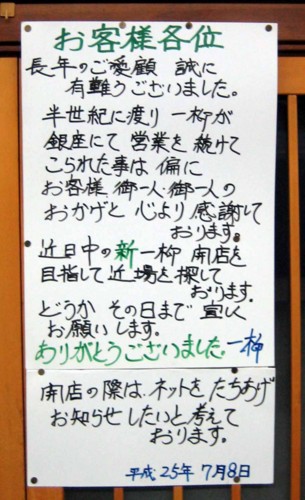 お客様各位
長年のご愛顧 誠に
有難うございました。
半世紀に渡り 一柳が
銀座にて 営業を 続けて
こられた事は 偏に
お客様 御一人・御一人の
おかげと 心より 感謝して
おります。
近日中の新一柳 開店を
目指して 近場を 探して
おります。
どうか その日まで 宜しく
お願いします。
ありがとうございました。一柳
開店の際は、ネットを たちあげ
お知らせしたいと考えて
おります。
平成25年7月8日